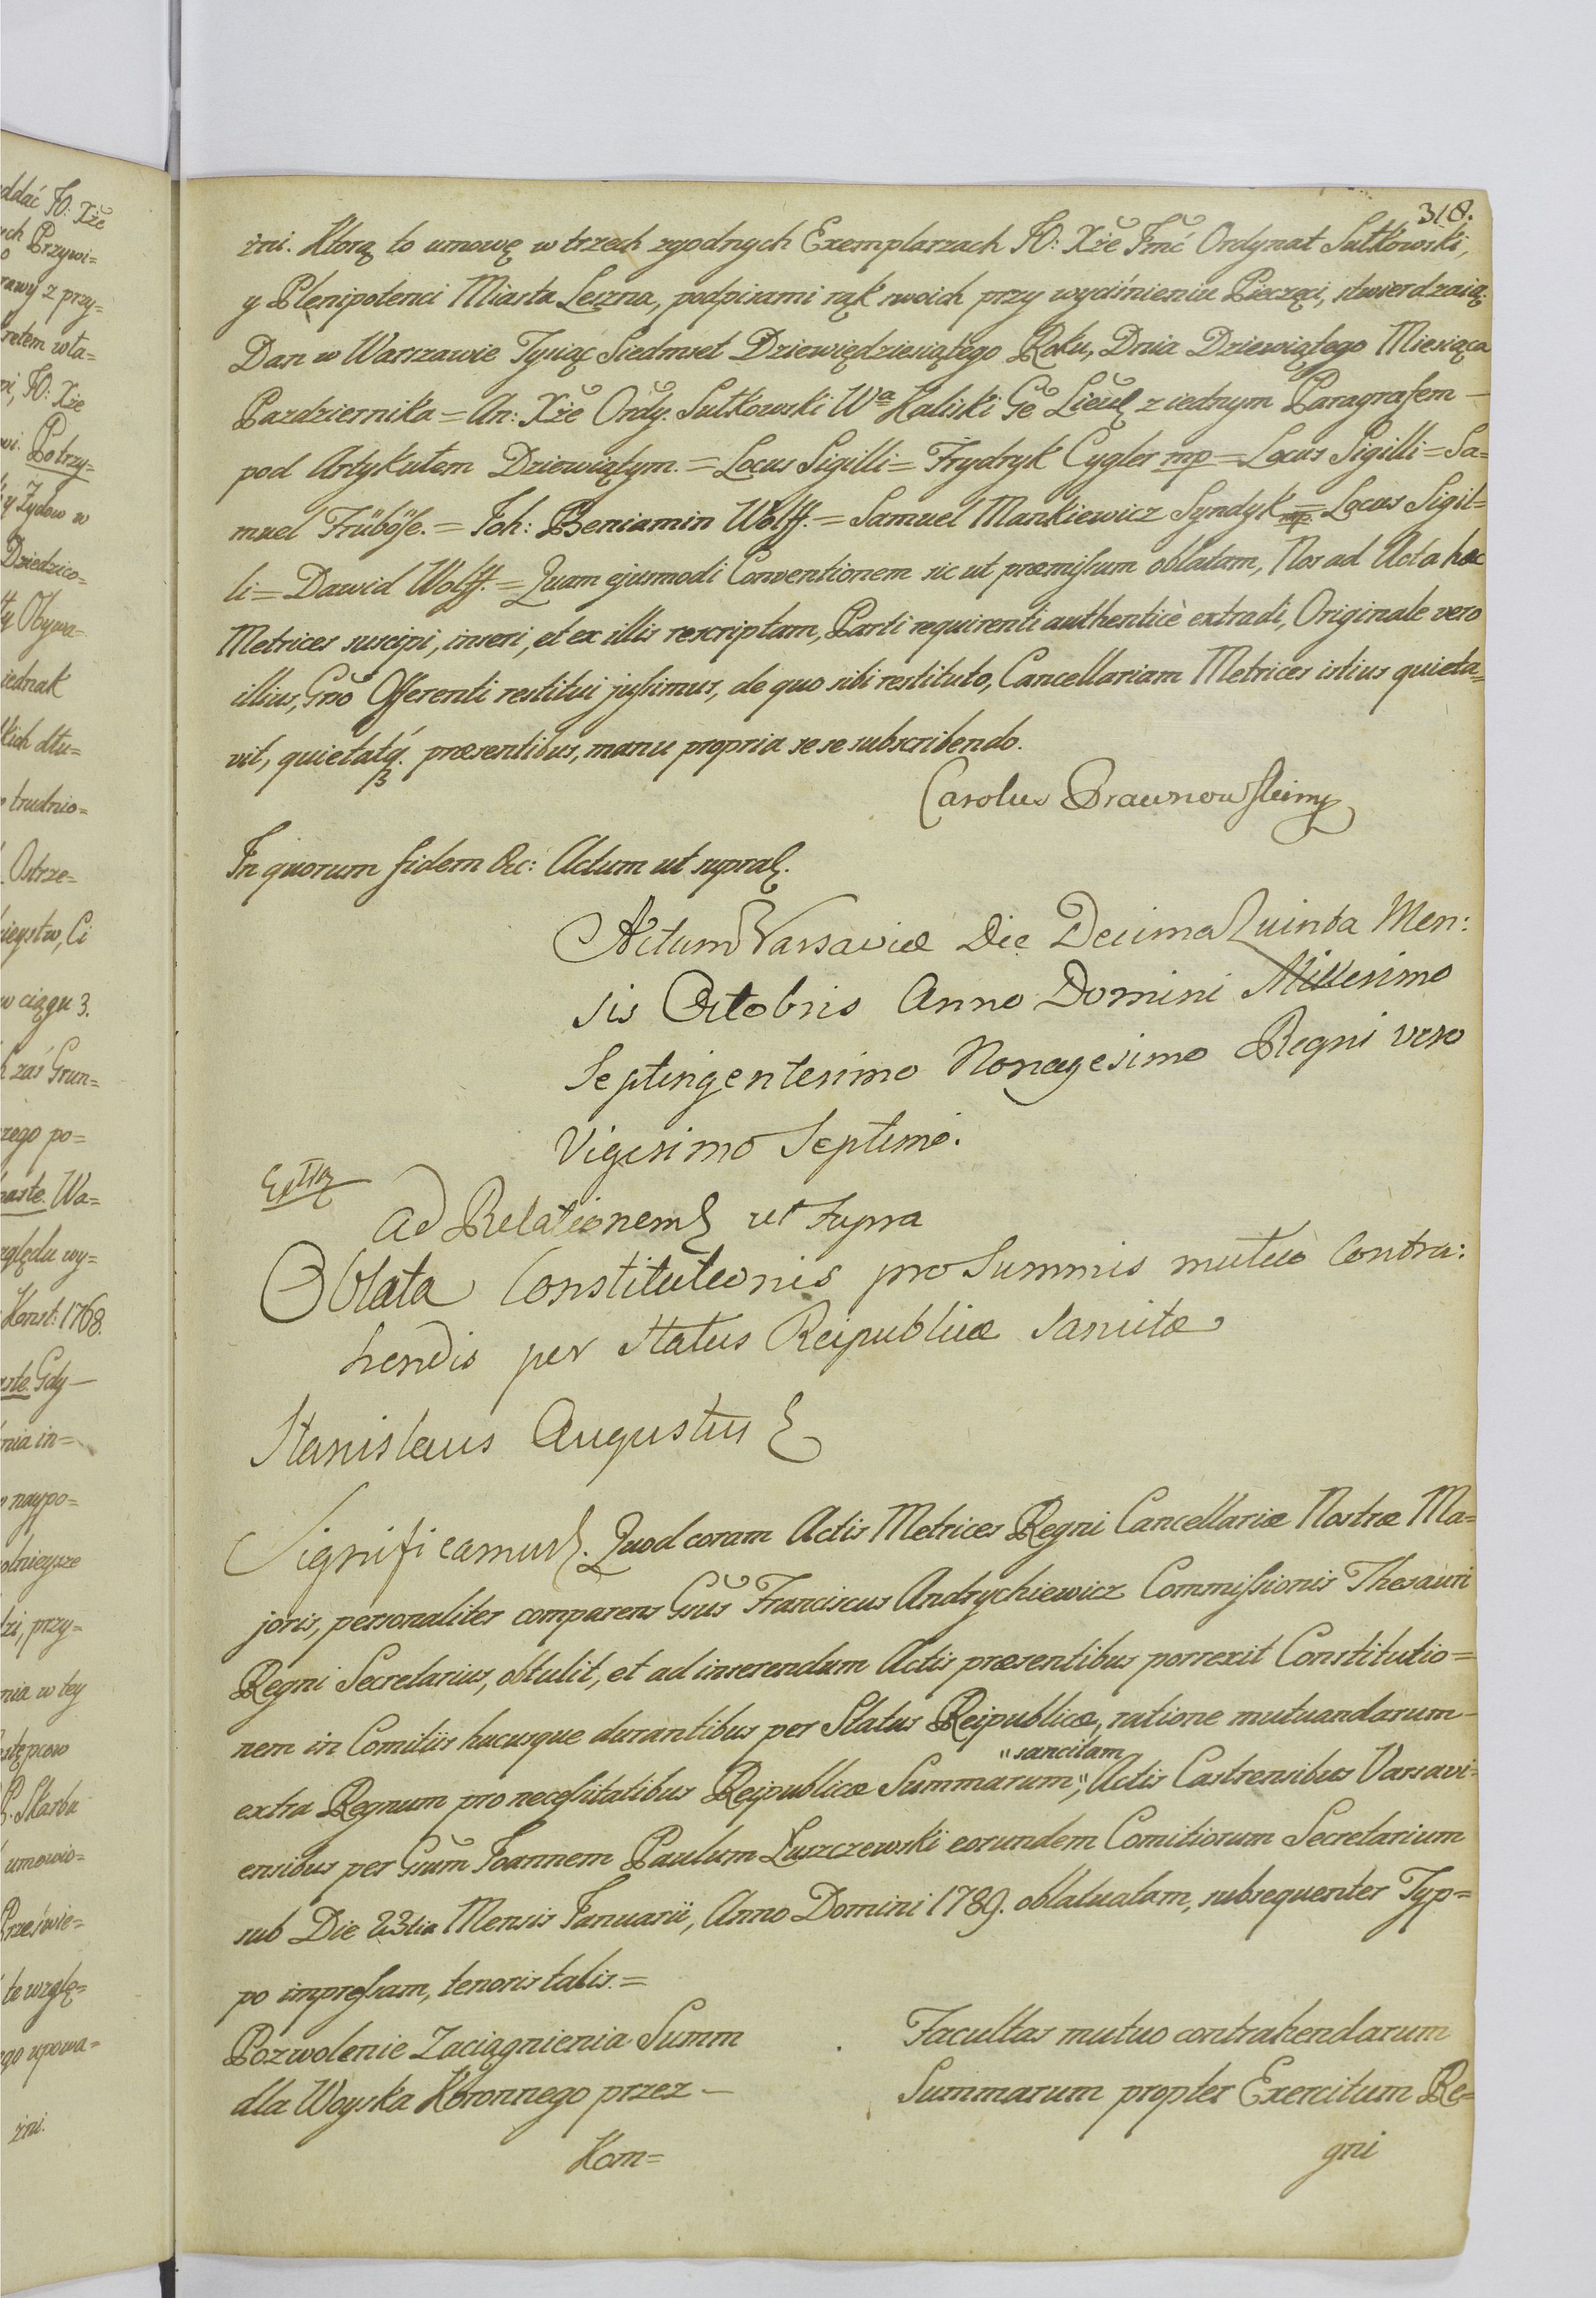 318.
żni. Którą to umowę w trzech zgodnych Exemplarzach JO: Xże Jmć Ordynat Sułkowski,
y Plenipotenci Miasta Leszna, podpisami rąk swoich przy wyciśnieniu Pieczęci, stwierdzaią.
Dan w Warszawie Tysiąc Siedmset Dziewiędziesiątego Roku, Dnia Dziewiątego Miesiąca
Pazdziernika = An: Xże Ordy. Sułkowski Wa Kaliski Ge Lieut z iednym Paragrafem —
pod Artykułem Dziewiątym. = Locus Sigilli = Frydryk Cygler mp = Locus Sigilli = Sa=
muel Früböse. = Joh: Beniamin Wolff. = Samuel Mankiewicz Syndyk mp. = Locus Sigil=
li = Dawid Wolff. = Quam ejusmodi Conventionem sic ut præmissum oblatam, Nos ad Acta hæc
Metrices suscipi, inseri, et ex illis rescriptam, Parti requirenti authenticè extradi, Originale vero
illius, Gnõ Offerenti restitui jussimus, de quo sibi restituto, Cancellariam Metrices istius quieta=
vit, quietatq. præsentibus, manu propria se se subscribendo.
Carolus Braunow
In quorum fidem &c: Actum ut supra.
Actum Varsaviæ Die Decima Quinta Men:
sis Octobris Anno Domini Millesimo
Septingentesimo Nonagesimo Regni vero
Vigesimo Septimo.
Ad Relationem ut supra
Oblata Constitutionis pro Summis mutuo Contra:
hendis per Status Reipublicæ Sancitæ
Stanislaus Augustus
Significamus. Quod coram Actis Metrices Regni Cancellariæ Nostræ Ma=
joris, personaliter comparens Gsus Franciscus Andrychiewicz Commissionis Thesauri
Regni Secretarius, obtulit, et ad inserendum Actis præsentibus porrexit Constitutio=
nem in Comitiis hucusque durantibus per Status Reipublicæ, ratione mutuandarum —
"sancitam
extra Regnum pro necessitatibus Reipublicæ Summarum", Actis Castrensibus Varsavi=
ensibus per Gsum Joannem Paulum Łuszczewski eorundem Comitiorum Secretarium
sub Die 23tia Mensis Januarii, Anno Domini 1789. oblatuatam, subsequenter Typ=
po impressam, tenoris talis. =
Pozwolenie Zaciągnienia Summ
dla Woyska Koronnego przez —
Kom=
Facultas mutuo contrahendarum
Summarum propter Exercitum Re=
gni